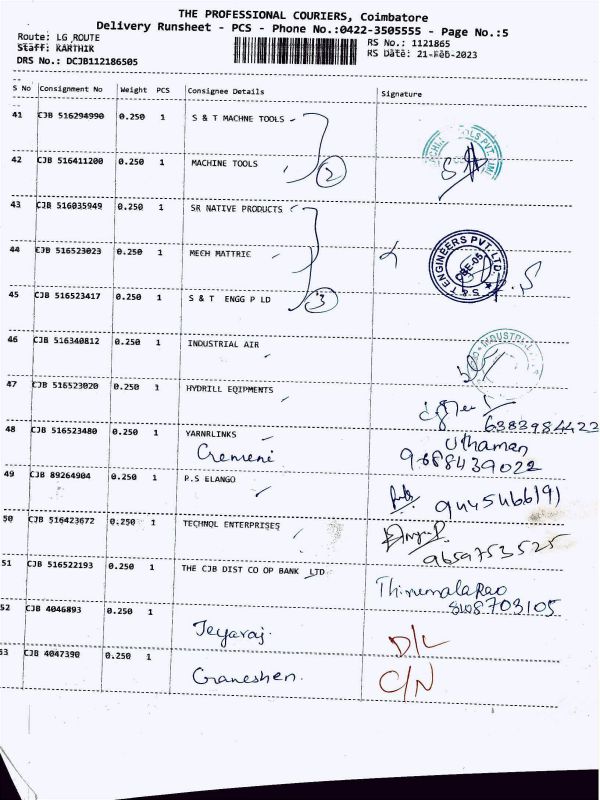 THE PROFESSIONAL COURIERS, Coimbatore
Delivery Runsheet - PCS - Phone No.:0422-3505555 - Page No.:5
Route: LG ROUTE
Staff: KARTHIK
DRS No.: DCJB112186505
RS No.: 1121865
RS Date: 21-Feb-2023
S No Consignment No Weight PCS Consignee Details Signature
41 CJB 516294990 0.250 1 S & T MACHNE TOOLS
42 CJB 516411200 0.250 1 MACHINE TOOLS
2
43 CJB 516035949 0.250 1 SR NATIVE PRODUCTS
44 CJB 516523023 0.250 1 MECH MATTRIC
S & T ENGINEERS PVT. LTD. CBE-05
45 CJB 516523417 0.250 1 S & T ENGG P LD
3
46 CJB 516340812 0.250 1 INDUSTRIAL AIR
47 CJB 516523020 0.250 1 HYDRILL EQIPMENTS
6383984422
48 CJB 516523480 0.250 1 YARNRLINKS
Uthaman
9688439022
49 CJB 89264904 0.250 1 P.S ELANGO
9445466191
50 CJB 516423672 0.250 1 TECHNOL ENTERPRISES
9659753525
51 CJB 516522193 0.250 1 THE CJB DIST CO OP BANK LTD
ThirumalaRao
52 CJB 4046893 0.250 1
Jeyaraj.
D/L
53 CJB 4047390 0.250 1
Ganeshen.
C/N